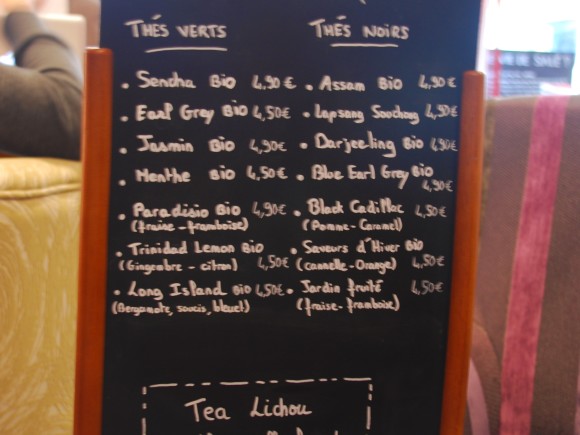 THÉS VERTS
• Sencha Bio 4,90€
• Earl Grey Bio 4,50€
• Jasmin Bio 4,90€
• Menthe Bio 4,50€
• Paradisio Bio 4,90€
(fraise-framboise)
• Trinidad Lemon Bio
(Gingembre - citron) 4,50€
• Long Island Bio 4,50€
(Bergamote, soucis, bleuet)
THÉS NOIRS
• Assam Bio 4,90€
• Lapsang Souchong 4,50€
• Darjeeling Bio 4,90€
• Blue Earl Grey Bio
4,90€
• Black Cadillac 4,50€
(Pomme-Caramel)
• Saveurs d'Hiver Bio
(cannelle-Orange) 4,50€
• Jardin fruité 4,50€
(fraise-framboise)
Tea Lichou